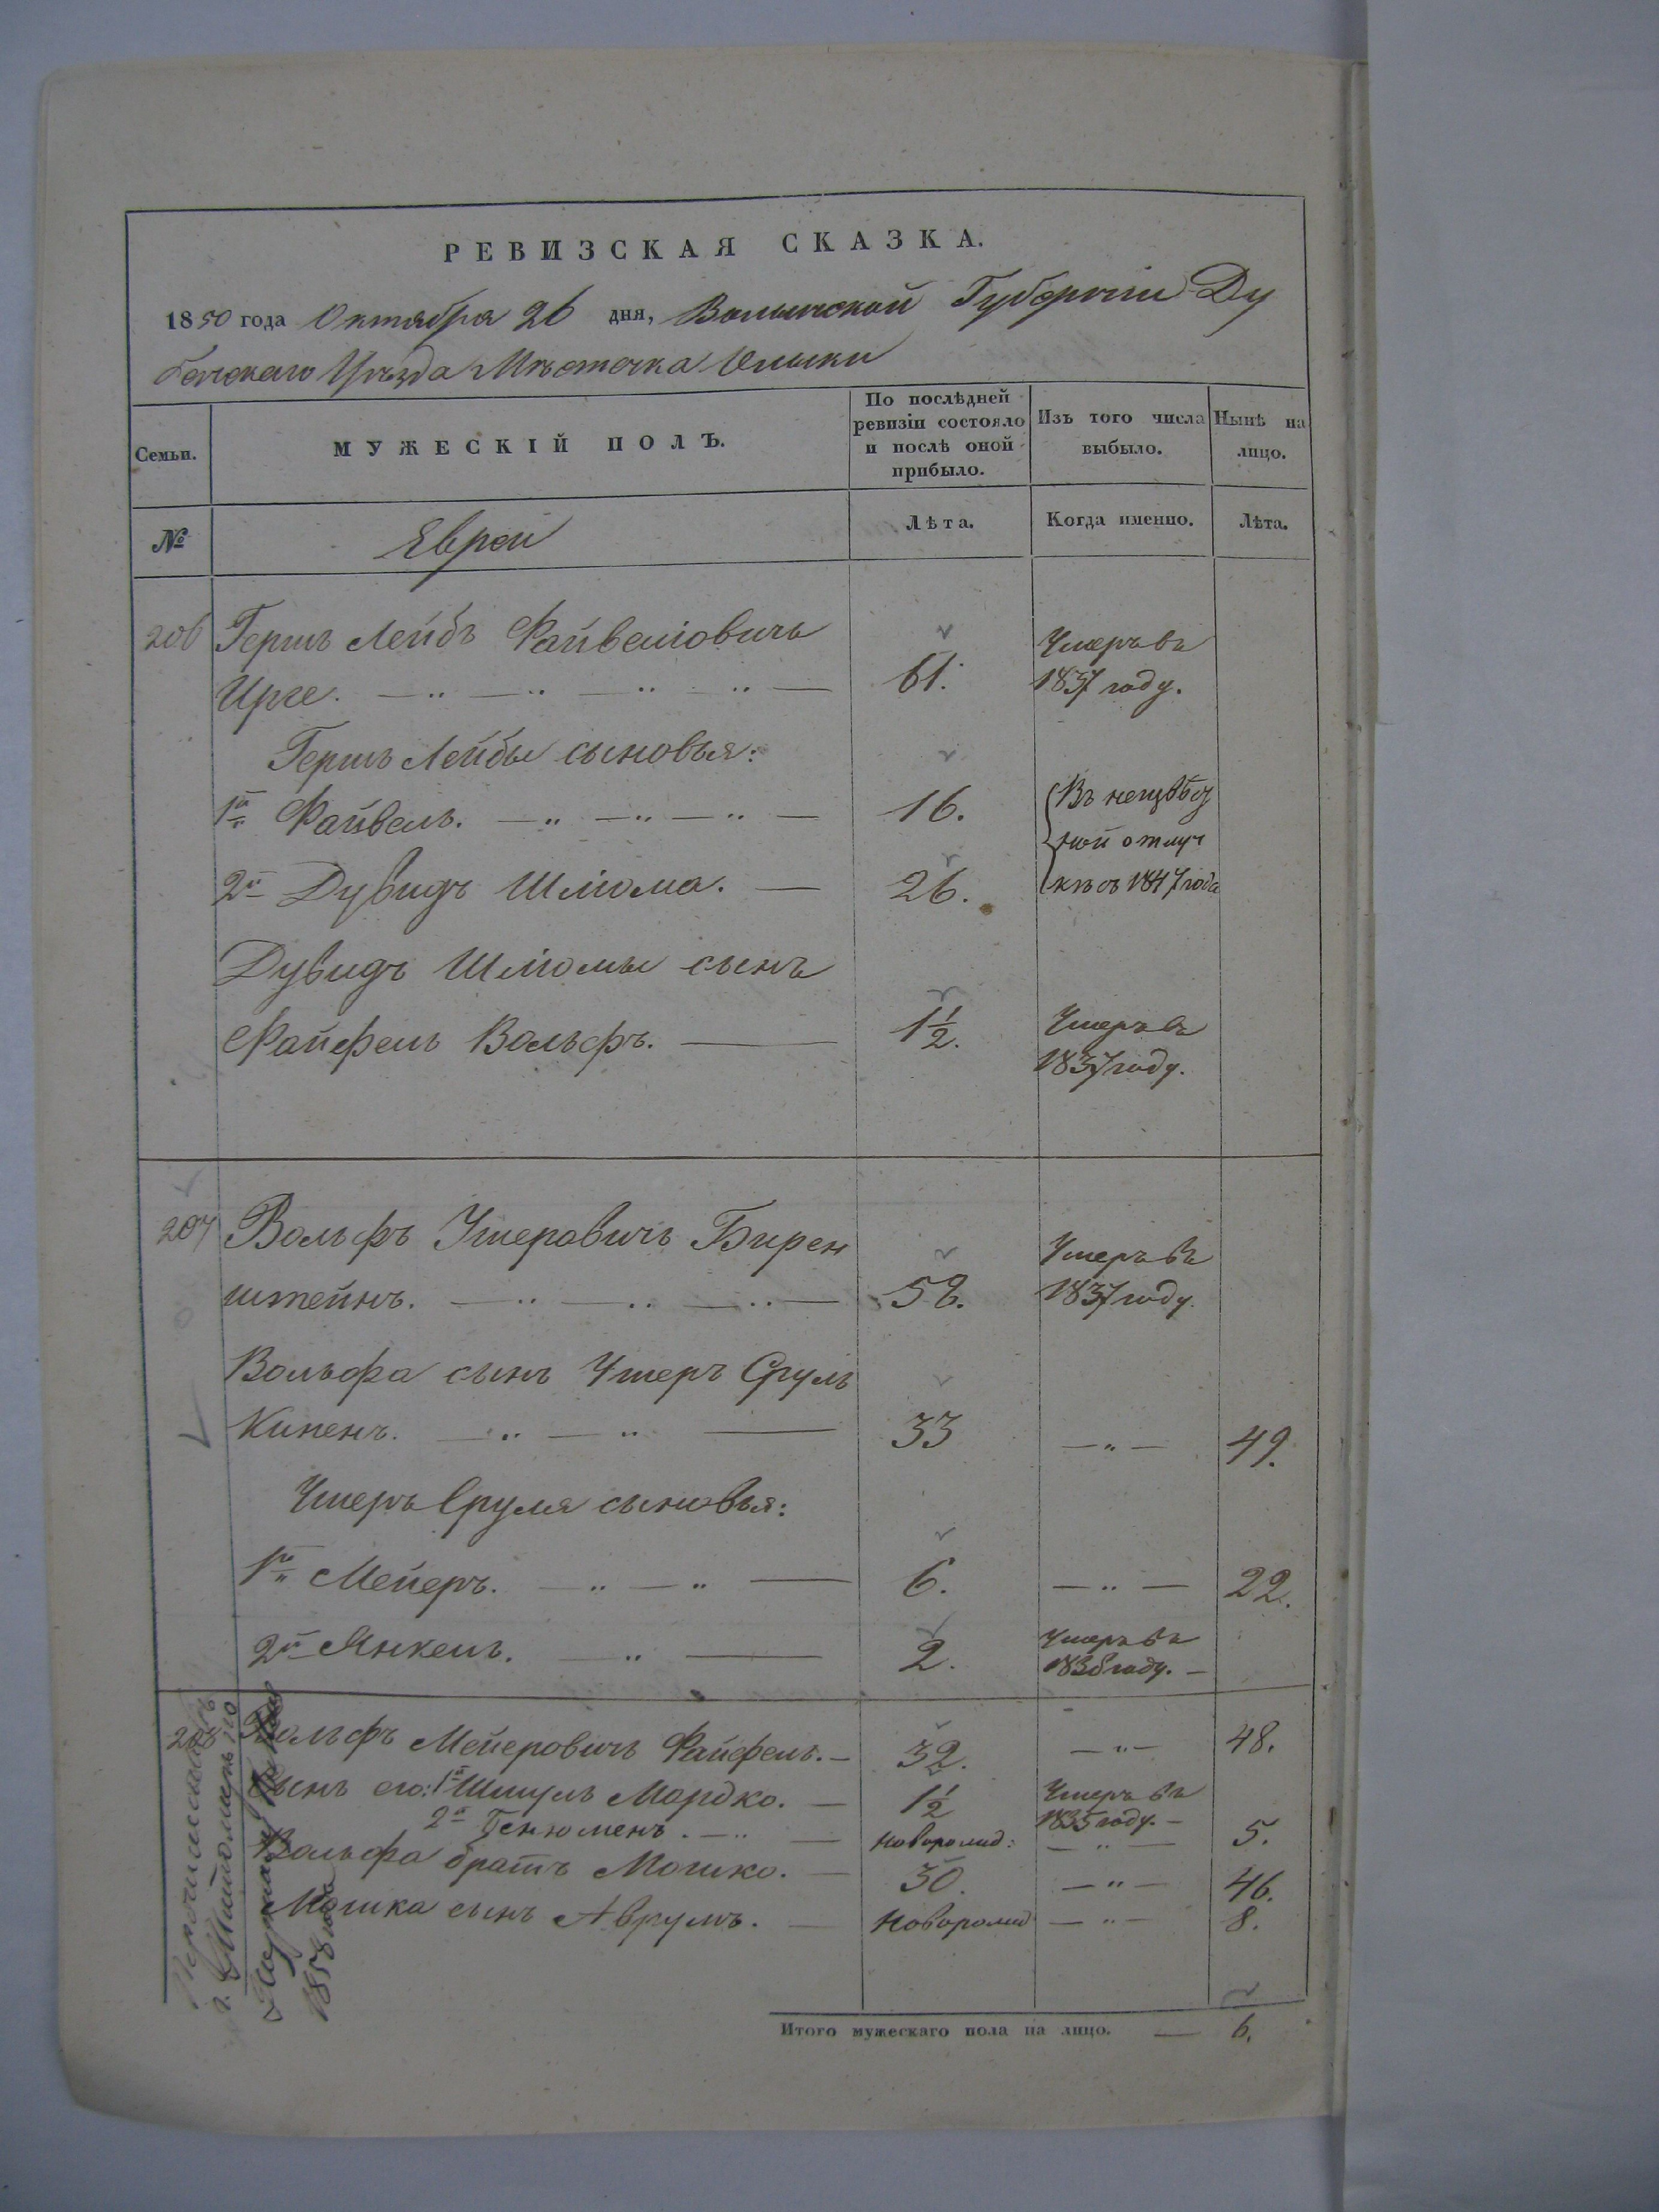 РЕВИЗСКАЯ СКАЗКА.
1850 года Октября 26 дня, Волынской Губерніи Ду
бенскаго Уѣзда Мѣстечка Олыки
Семьи.
МУЖЕСКІЙ ПОЛЪ.
По послѣдней ревизіи состояло и послѣ оной прибыло.
Изъ того числа выбыло.
Нынѣ на лицо.
№
Евреи
Лѣта.
Когда именно.
Лѣта.
206 Гершъ Лейбъ Файвелiовичъ Умеръ въ
Ирге. 61. 1837 году.
Гершъ Лейбы сыновья:
1й Файвель. 16. Въ неизвѣст
ной отлуч
2й Дувидъ Шліома. 26. кѣ съ 1847 года
Дувидъ Шліомы сынъ
Файфель Вольфъ. 1½. Умеръ въ
1837 году.
207 Вольфъ Ушеровичъ Бирен Умеръ въ
штейнъ. 58. 1837 году.
Вольфа сынъ Ушеръ Сруль
Кипенъ. 33 49.
Ушеръ Сруля сыновья:
1й Мейеръ. 6. 22.
2й Янкель. 2. Умеръ въ
1838 году.
208 Вольфъ Мейеровичъ Файфель. 32. 48.
Сынъ его: 1й Шмуль Мордко. 1½ Умеръ въ
1835 году.
2й Бенюменъ. новорожд: 5.
Вольфа братъ Мошко. 30. 46.
Мошка сынъ Аврумъ. новорожд 8.
Перечислены въ
г. Житомиръ по
1858 года
Итого мужескаго пола на лицо. 6.